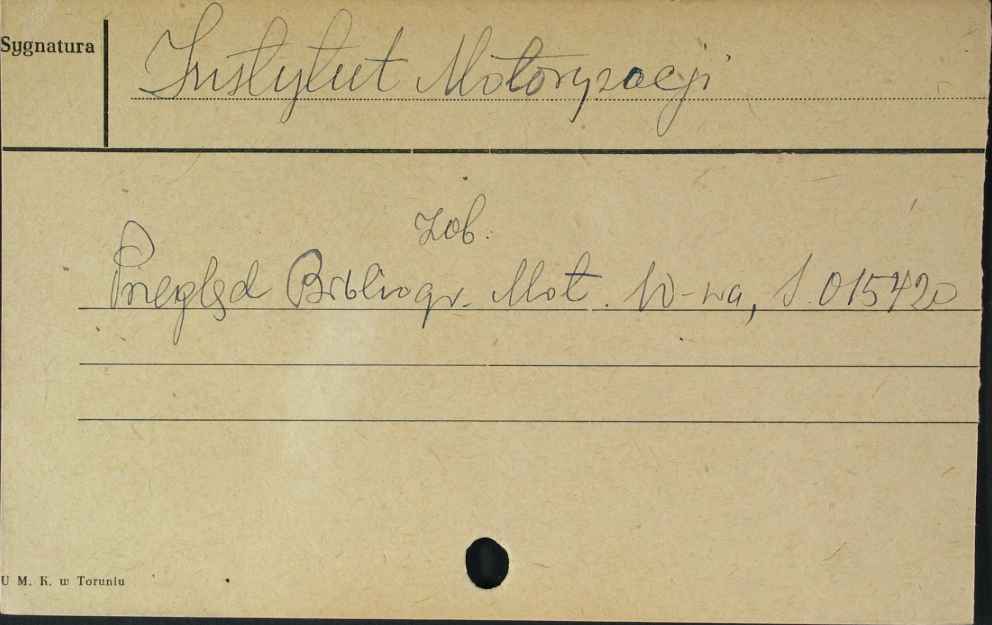 Sygnatura
Instytut Motoryzacji
Zob.
Przegląd Bibliogr. Mot. W-wa, S. 015420
U M. K. w Toruniu